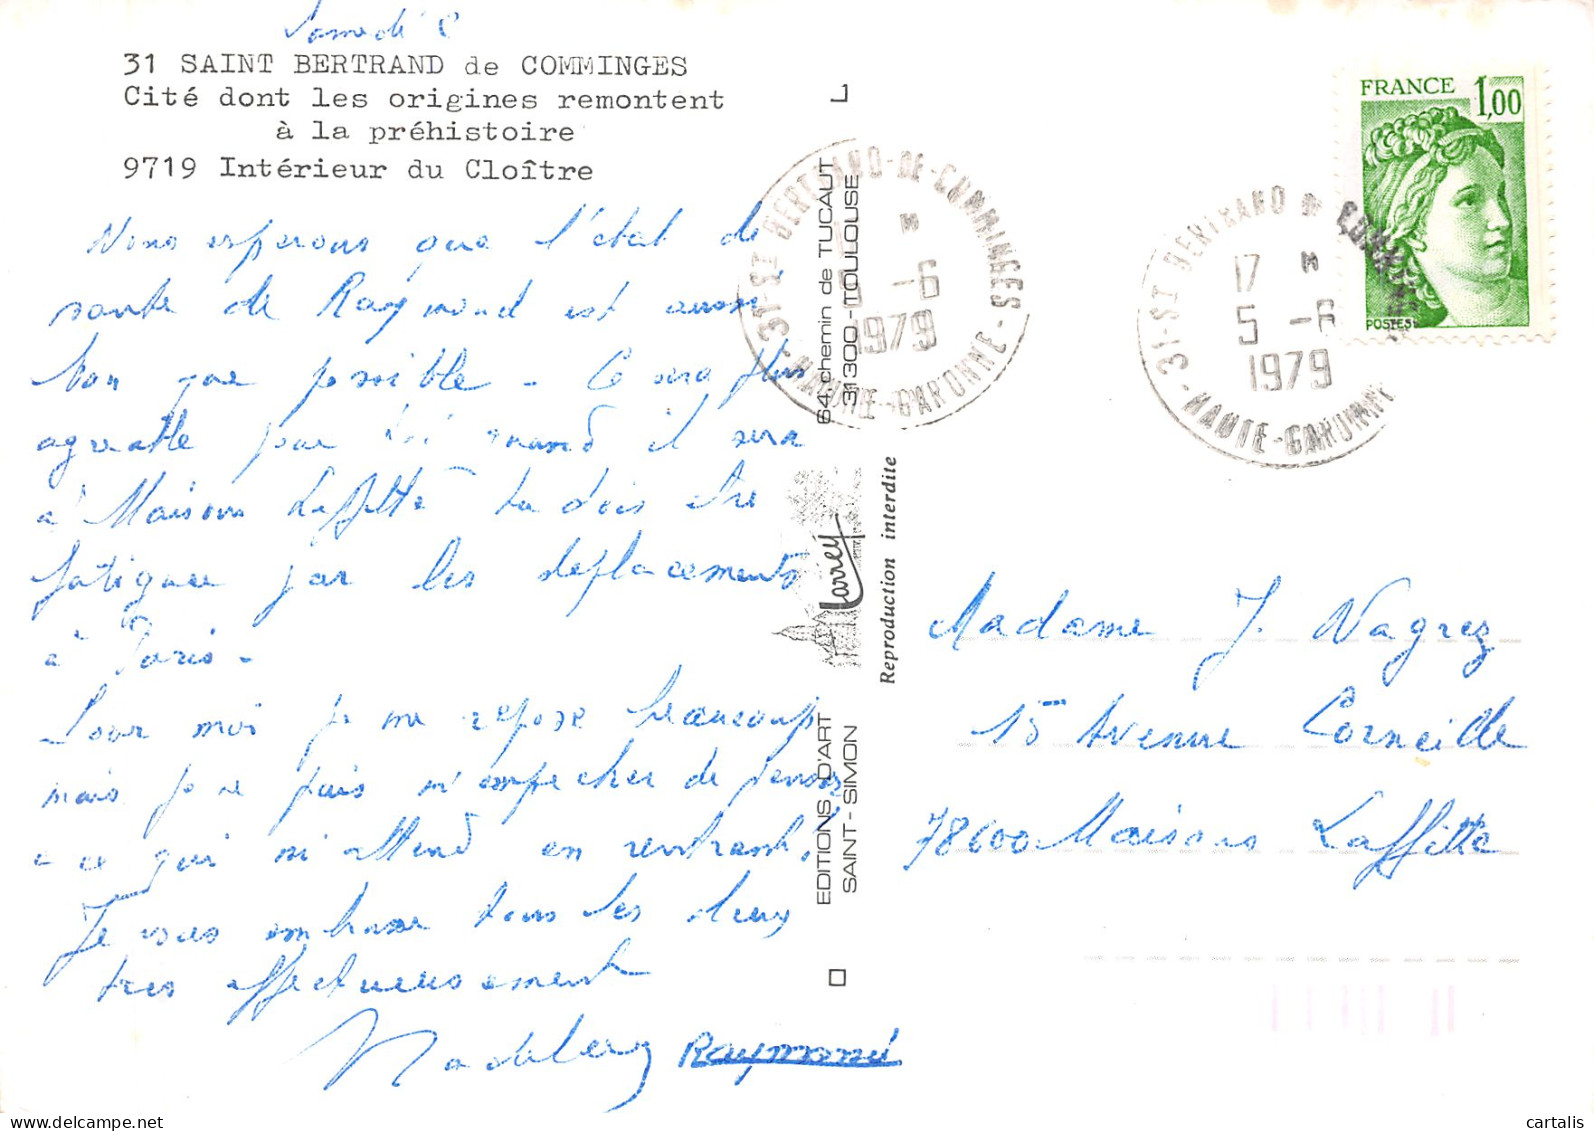 Samedi 2
31 SAINT BERTRAND de COMMINGES
Cité dont les origines remontent
à la préhistoire
9719 Intérieur du Cloître
Nous esperons que l'état de
sante de Raymond est aussi
bon que possible - Ce sera plus
agreable pour lui quand il sera
à Maisons Laffitte tu dois etre
fatiguee par les deplacements
à Paris -
Pour moi je me repose beaucoup
mais je ne puis m'empecher de penser
a ce qui m'attend en rentrant.
Je vous embrasse tous les deux
tres affectueusement
Raymond
EDITIONS D'ART
SAINT-SIMON
Larrey
64, chemin de TUCAUT
31300-TOULOUSE
Reproduction interdite
31-ST BERTRAND-DE-COMMINGES
5-6
1979
HAUTE-GARONNE
31-ST BERTRAND DE COMMINGES
17 H
5-6
1979
HAUTE-GARONNE
FRANCE 1,00
POSTES
Madame J. Nagrez
15 Avenue Corneille
78600 Maisons Laffitte
cartalis
www.delcampe.net